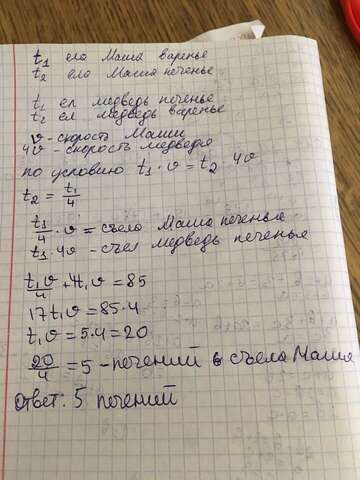 t₁ ела Маша варенье
t₂ ела Маша печенье
t₁ ел медведь печенье
t₂ ел медведь варенье
v - скорость Маши
4v - скорость медведя
по условию t₁ · v = t₂ · 4v
t₂ = t₁/4
t₁/4 · v = съела Маша печенья.
t₁ · 4v - съел медведь печенья
t₁v/4 + 4t₁v = 85
17t₁v = 85·4
t₁v = 5·4 = 20
20/4 = 5 - печений съела Маша
ответ: 5 печений